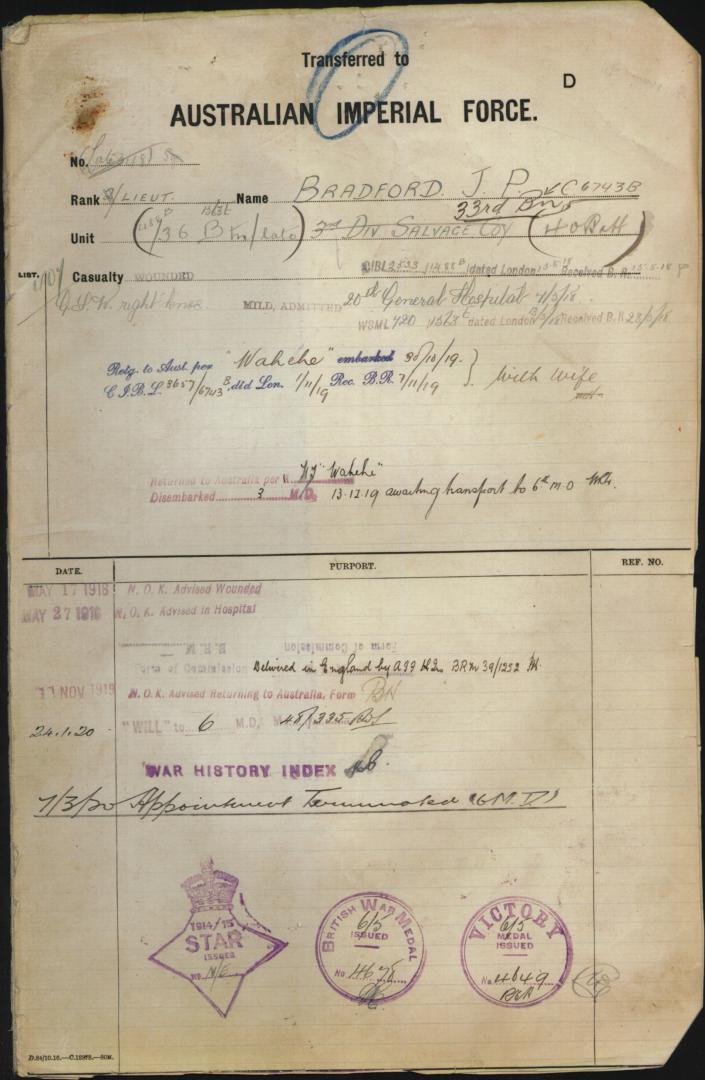 Transferred to
D
AUSTRALIAN IMPERIAL FORCE.
No.
Rank 2/LIEUT. Name BRADFORD. J. P. C6743B
33rd Bn
Unit (36 Btn/late) 3rd DIV SALVAGE COY (40 Btt)
CIBL2533 1488B dated London 13-5-18 Received B.R. 15-5-18
LIST.
Casualty WOUNDED
G.S.W. right knee. MILD, ADMITTED 20th General Hospital 7/5/18.
WSML 420 1563E dated London Received B.R. 28/5/18
Retg. to Aust. per "Wahehe" embarked 30/10/19.
C.I.B.L. 3657/6743B, dtd Lon. 1/11/19 Rec. B.R. 7/11/19 } With Wife
Returned to Australia per H.T "Wahehe"
Disembarked 3 M.D. 13.12.19 awaiting transport to 6th M.D
DATE. PURPORT. REF. NO.
MAY 17 1918 N. O. K. Advised Wounded
MAY 27 1918 N. O. K. Advised in Hospital
B.R.M.
Form of Commission
Form of Commission Delivered in England by AIF H.Q. BRM 39/1252
11 NOV 1919 N. O. K. Advised Returning to Australia, Form BH
24.1.20 "WILL" to 6 M.D. 48/335
WAR HISTORY INDEX
7/3/20 Appointment Terminated (6 M.D.)
1914/15
STAR
ISSUED
NO N/E
BRITISH WAR MEDAL
6/5
ISSUED
No 4675
VICTORY
6/5
MEDAL
ISSUED
No. 4649
D.84/10.16.—C.12873.—50M.